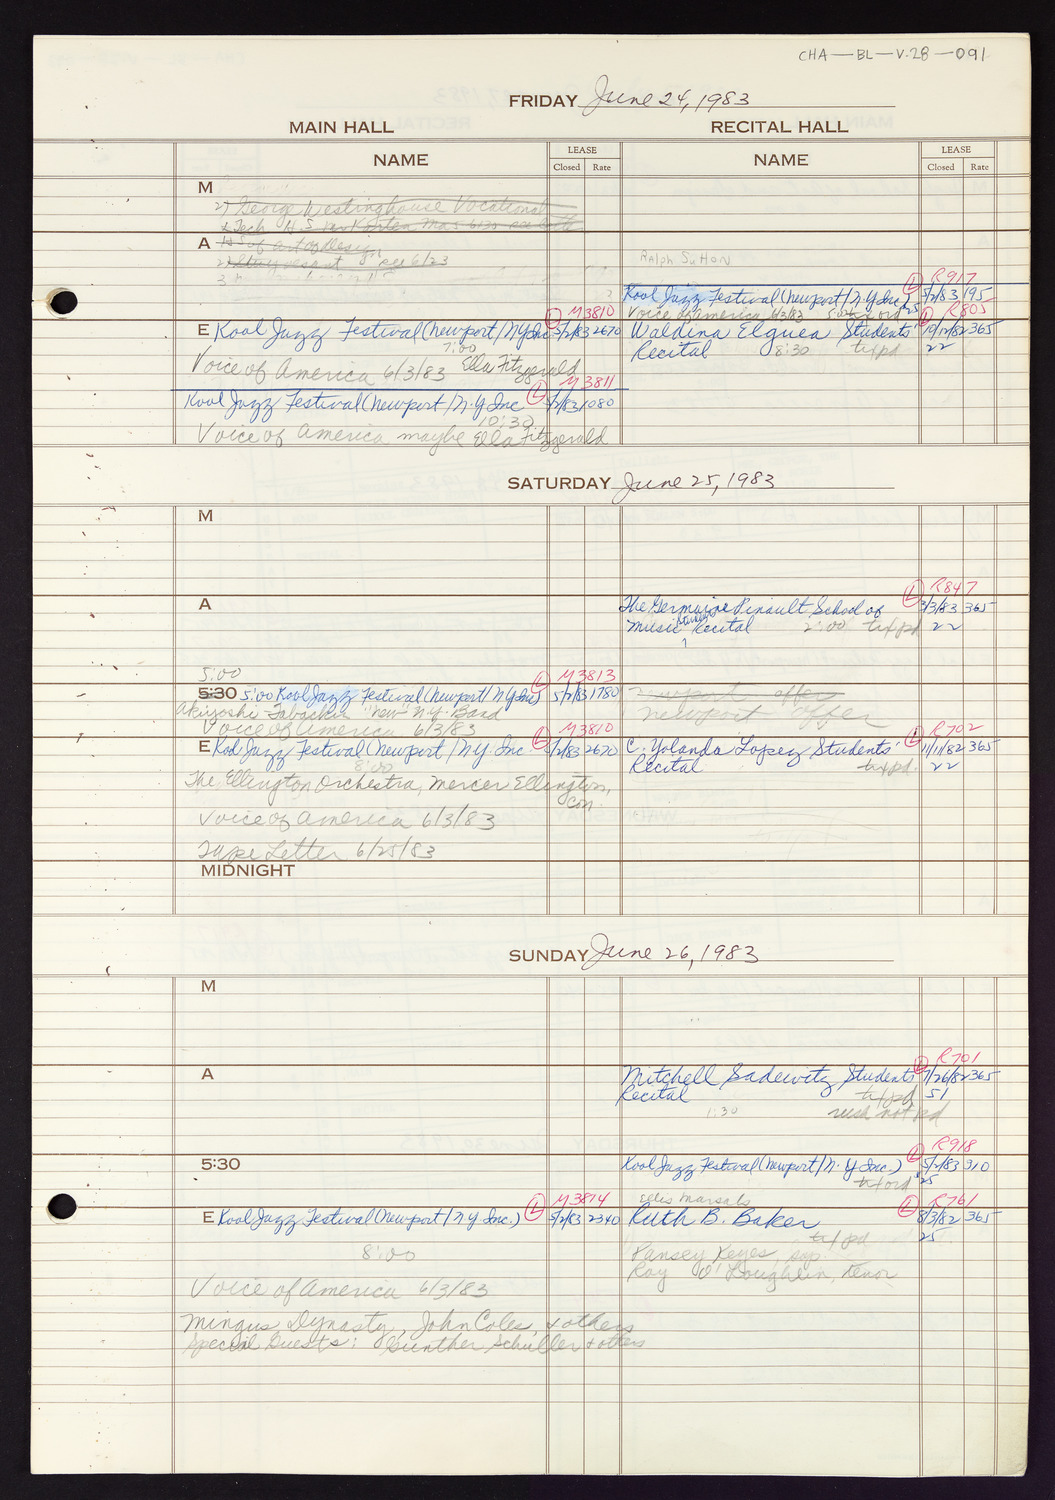 CHA-BL-V.28-091
FRIDAY June 24, 1983
MAIN HALL RECITAL HALL
NAME LEASE Closed Rate NAME LEASE Closed Rate
M
27 George Westinghouse Vocational
& Tech H.S.
A H.S of art & design
Ralph Sutton
L R917
Kool Jazz Festival (Newport/N.Y Inc) 5/2/83 195
Voice of America 6/3/83 25
L M3810
E Kool Jazz Festival (Newport/NY Inc 5/2/83 2670
7:00
Voice of America 6/3/83 Ella Fitzgerald
L R805
Waldina Elguea Students' 10/12/82 365
Recital 8:30 txt pd 22
L M3811
Kool Jazz Festival (Newport/N.Y Inc 5/2/83 1080
10:30
Voice of America maybe Ella Fitzgerald
SATURDAY June 25, 1983
M
A
L R847
The Germaine Pinault School of 3/3/83 365
Music Student Recital 2:00 txt pd 22
5:00
L M3813
5:30 5:00 Kool Jazz Festival (Newport/N Y Inc) 5/2/83 1780
Akiyoshi-Tabackin "new" N.Y. Band
Voice of America 6/3/83
Newport offer
Newport offer
L M3810
E Kool Jazz Festival (Newport/N.Y. Inc 5/2/83 2670
8:00
The Ellington Orchestra, Mercer Ellington,
Con.
Voice of America 6/3/83
Tape Letter 6/25/83
L R702
C. Yolanda Lopez Students' 11/11/82 365
Recital txt pd. 22
MIDNIGHT
SUNDAY June 26, 1983
M
A
L R701
Mitchell Sadewitz Students' 7/26/82 365
Recital txt pd 51
1:30 rush not pd
5:30
L R918
Kool Jazz Festival (Newport/N.Y Inc.) 5/2/83 910
txt ord 25
Ellis Marsals
L M3814
E Kool Jazz Festival (Newport/N Y Inc.) 5/2/83 2340
8:00
Voice of America 6/3/83
Mingus Dynasty, John Coles, & others
Special Guests: Gunther Schuller & others
L R761
Ruth B. Baker 8/3/82 365
txt pd 25
Pansey Keyes, sop.
Ray O'Loughlin, tenor